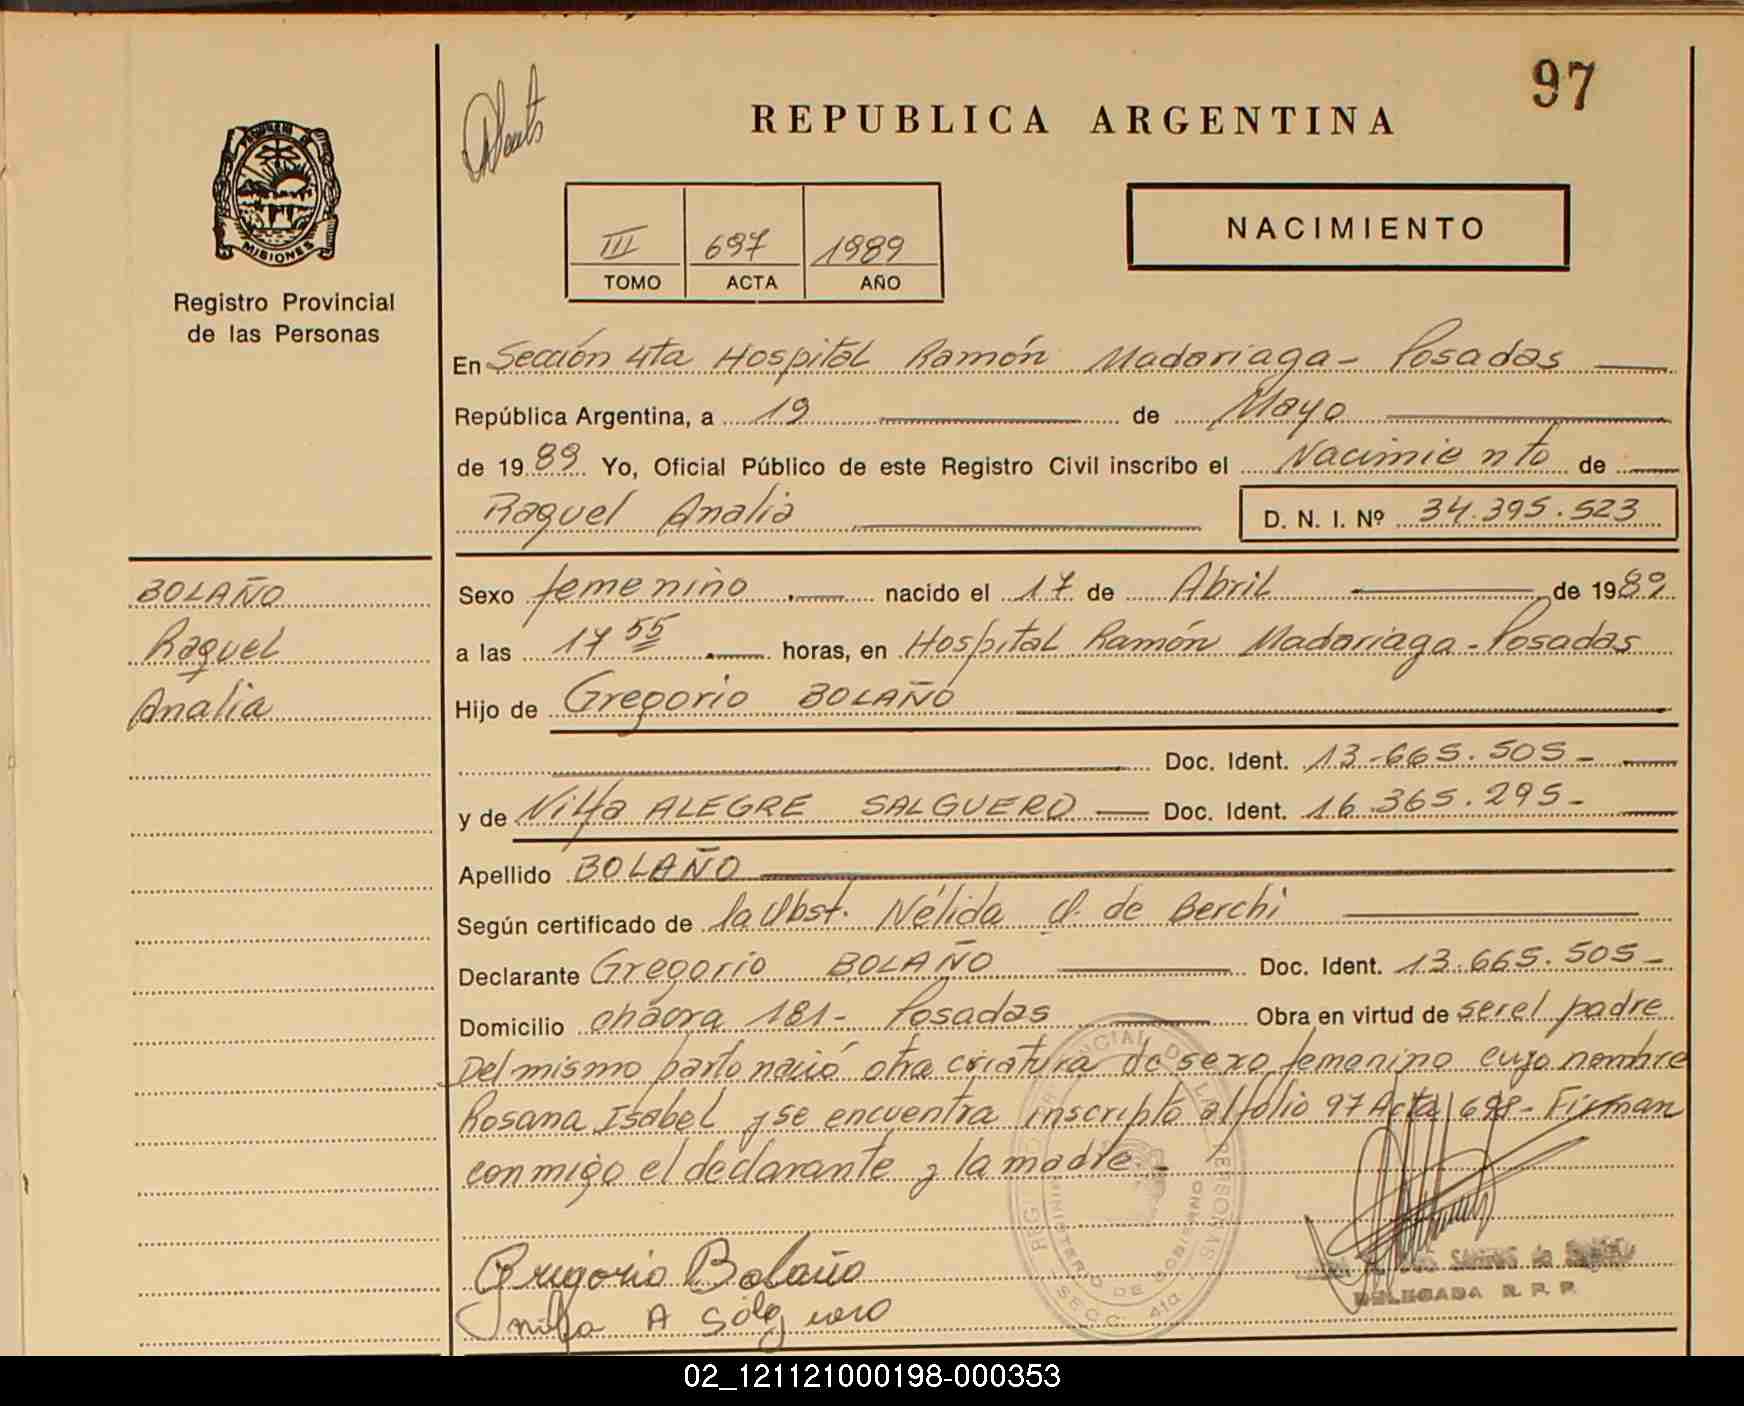 97
REPUBLICA ARGENTINA
PROVINCIA DE
MISIONES
Registro Provincial
de las Personas
III 697 1989
TOMO ACTA AÑO
NACIMIENTO
En Sección 4ta Hospital Ramón Madariaga - Posadas
República Argentina, a 19 de Mayo
de 1989 Yo, Oficial Público de este Registro Civil inscribo el Nacimiento de
Raquel Analia D. N. I. Nº 34.395.523
BOLAÑO
Raquel
Analia
Sexo femenino nacido el 17 de Abril de 1989
a las 17 55 horas, en Hospital Ramón Madariaga - Posadas
Hijo de Gregorio BOLAÑO
Doc. Ident. 13.665.505-
y de Nilfa ALEGRE SALGUERO Doc. Ident. 16.365.295-
Apellido BOLAÑO
Según certificado de la Obst. Nélida de Berchi
Declarante Gregorio BOLAÑO Doc. Ident. 13.665.505-
Domicilio chacra 181- Posadas Obra en virtud de ser el padre
Del mismo parto nació otra criatura de sexo femenino cuyo nombre
Rosana Isabel y se encuentra inscripto al folio 97 Acta 698- Firman
conmigo el declarante y la madre.-
Gregorio Bolaño
nilfa A Salguero
REGISTRO PROVINCIAL DE LAS PERSONAS
MINISTERIO DE GOBIERNO
SECC. 4ta
DELEGADA R. P. P.
02_121121000198-000353